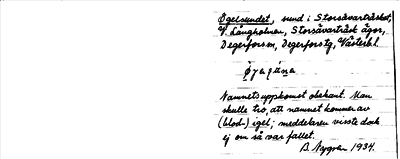 Øgelsundet, sund i Storsävarträsket,
V. Långholmen, Storsävarträsk ägor,
Degerforsm, Degerforstg, Västerb.l.
Namnets uppkomst obekant. Man
skulle tro, att namnet kommer av
(blod-) igel; meddelaren visste dock
ej om så var fallet.
B. Nygren 1934.